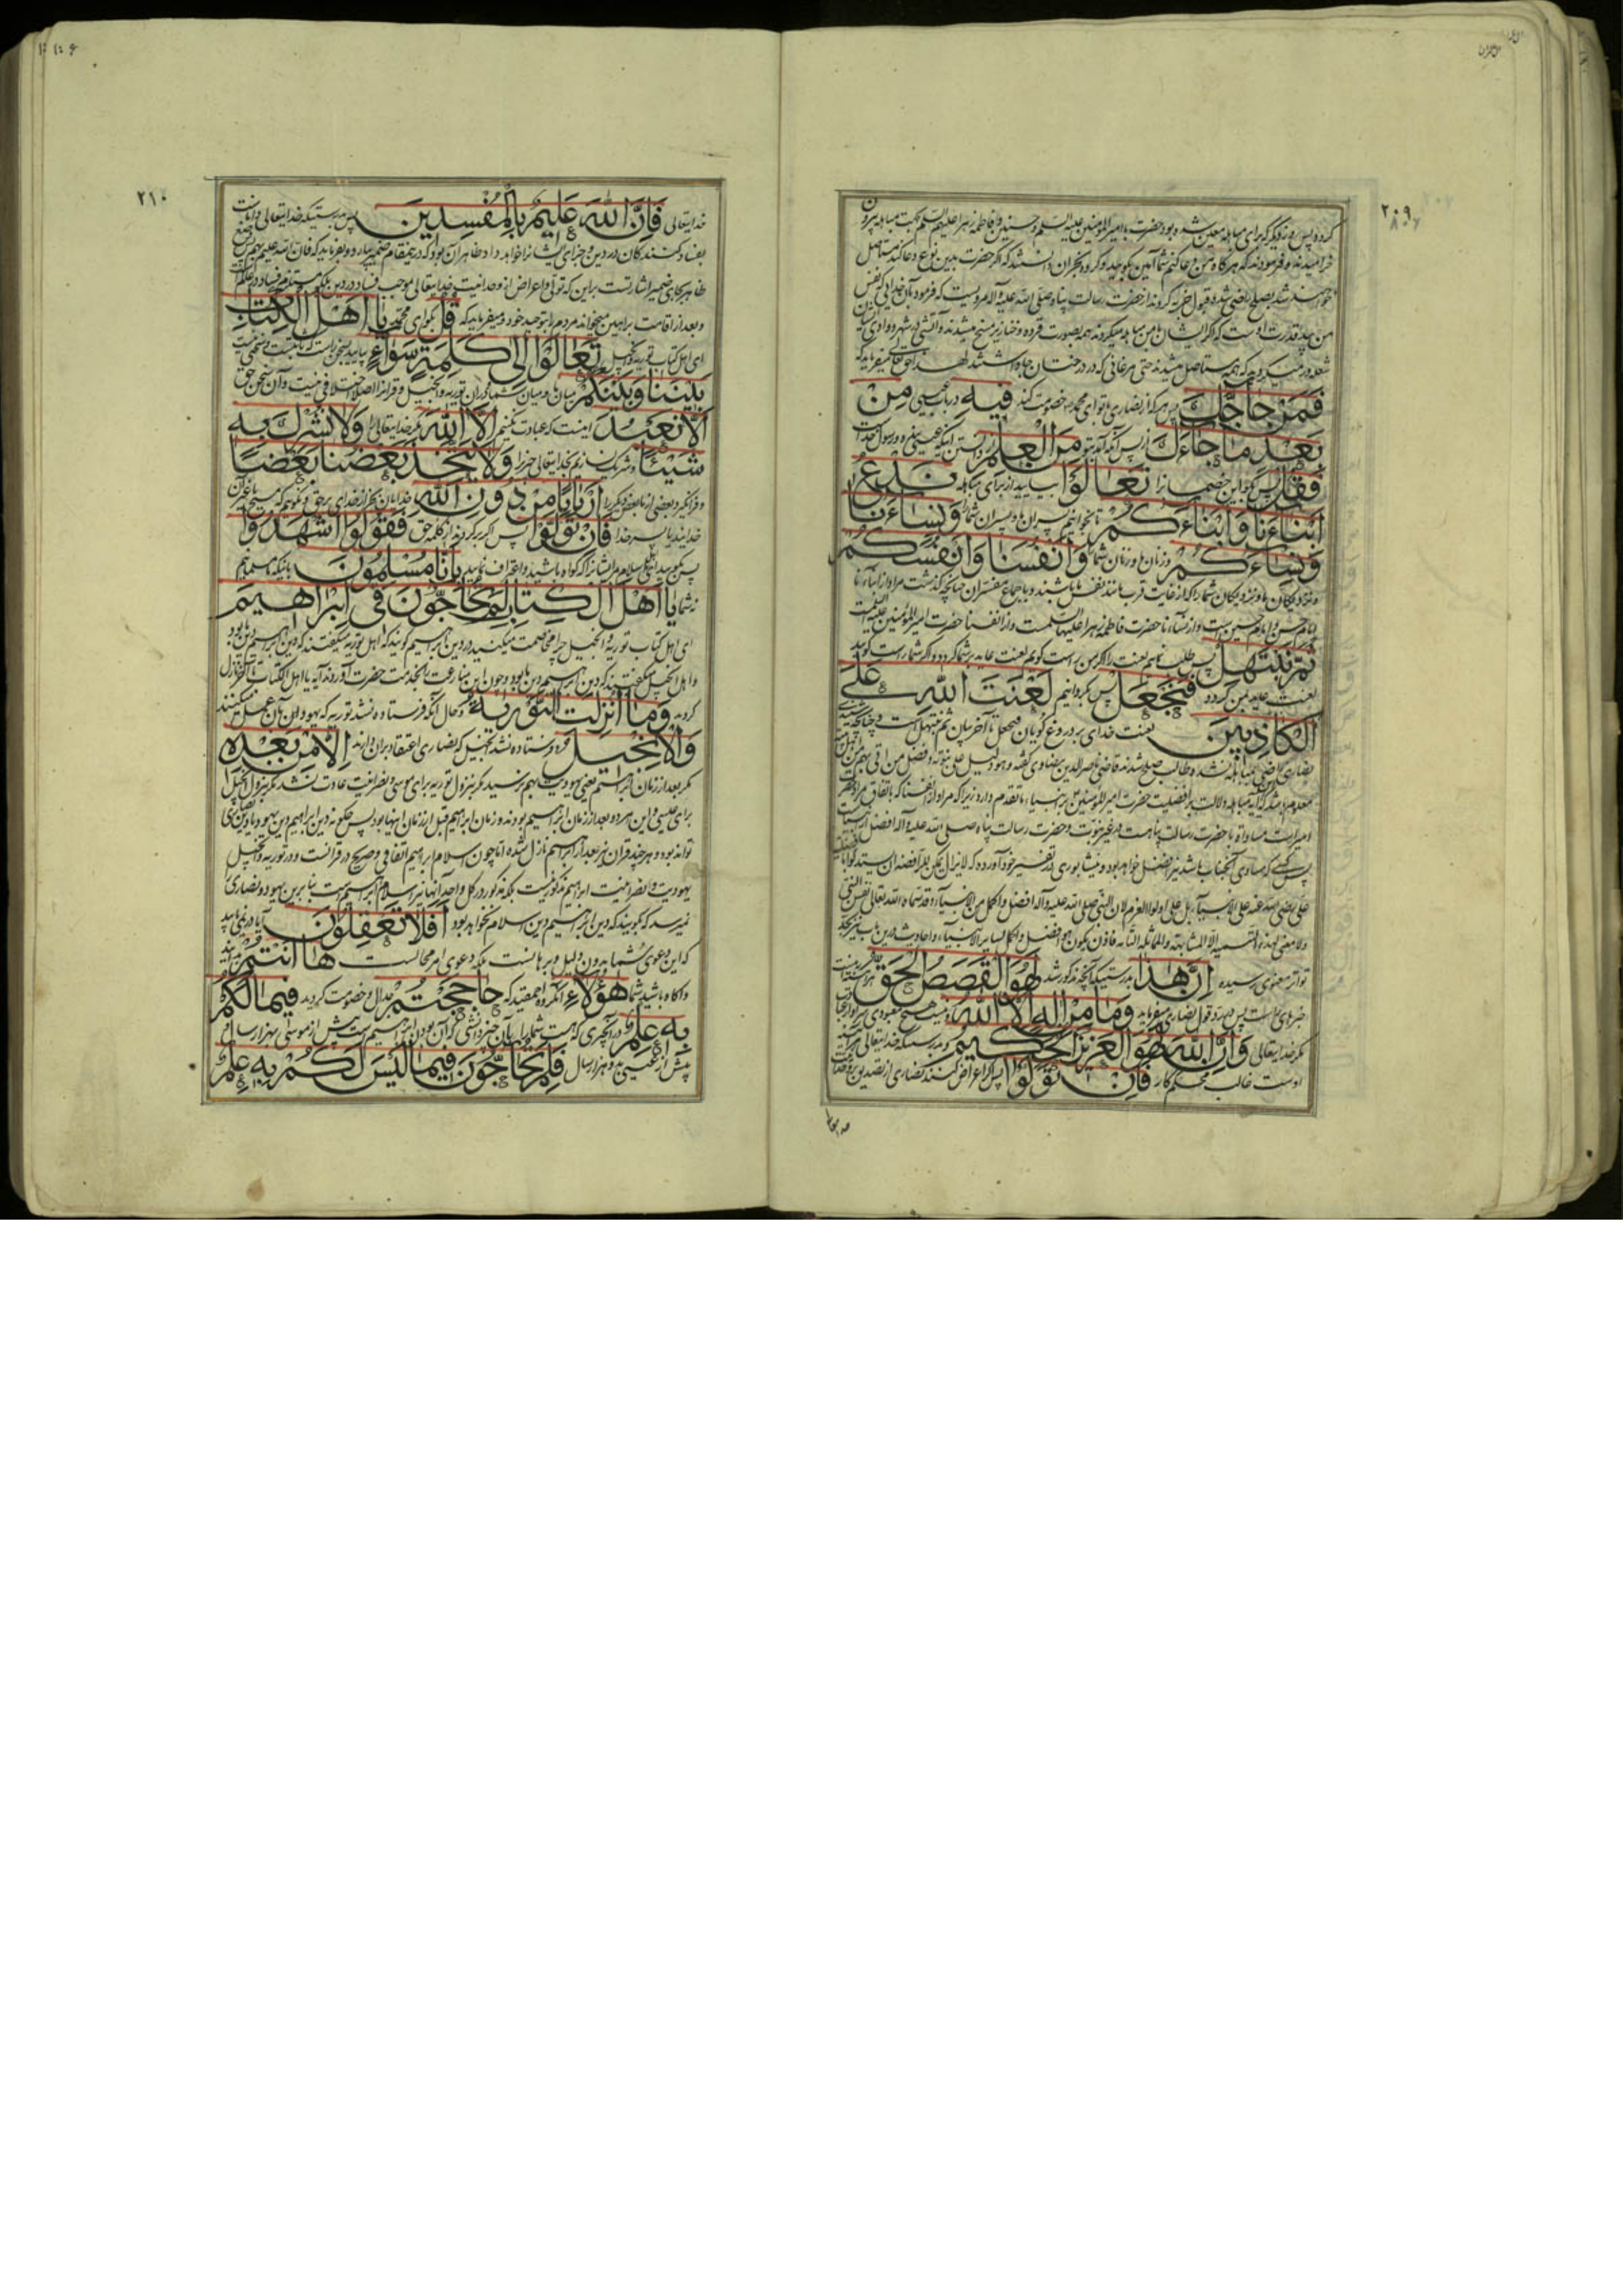 ۲۰۹
کرده پس روز دیگر که برای مباهله معین شده بود حضرت با امیرالمؤمنین علیه السلم و حسنین و فاطمه زهرا علیهم السلم بجهت مباهله بیرون
خرامیدند و فرمودند که هرگاه من دعا کنم شما آمین بگویید و گروه نجران دانستند که اگر حضرت بدین نوع دعا کند مستاصل
خواهند شد بصلح راضی شده قبول جزیه کردند از حضرت رسالت پناه صلی الله علیه و آله مرویست که فرمود بآن خدایی که نفس
من بید قدرت اوست که اگر ایشان با من مباهله میکردند همه بصورت قرده و خنازیر مسخ میشدند و آتشی در شهر و وادی ایشان
شعله ور میگردید که همه مستاصل میشدند حتی مرغانی که در درختان جا داشتند لهذا حق تعالی میفرماید که
فَمَنْ حَاجَّكَ پس هر که از نصاری با تو ای محمد خصومت کند فِيهِ در باب عیسی مِنْ
بَعْدِ مَا جَاءَكَ از پس آنکه آمد بتو مِنَ الْعِلْمِ از دانستن اینکه عیسی بنده و رسول خداست
فَقُلْ پس بگو این خصمها را تَعَالَوْا بیایید از برای مباهله نَدْعُ
أَبْنَاءَنَا وَأَبْنَاءَكُمْ تا بخوانیم پسران ما و پسران شما را وَنِسَاءَنَا
وَنِسَاءَكُمْ و زنان ما و زنان شما وَأَنْفُسَنَا وَأَنْفُسَكُمْ
و نزدیکان ما و نزدیکان شما را که از غایت قرب مانند نفس ما باشند و باجماع مفسران چنانچه گذشت مراد از ابناءنا
امام حسن و امام حسین است و از نساءنا حضرت فاطمه زهرا علیها السلمست و از انفسنا حضرت امیرالمؤمنین علیه السلمست
ثُمَّ نَبْتَهِلْ پس طلب نمایم لعنت را اگر من راست گویم لعنت عاید بر شما گردد و اگر شما راست گویید
لعنت عاید بمن گردد فَنَجْعَلْ پس گردانیم لَعْنَتَ اللَّهِ عَلَى
الْكَاذِبِينَ لعنت خدای بر دروغ گویان فنجعل تا آخر بیان ثم نبتهل است و چنانچه
نصاری راضی بمباهله نشدند و طالب صلح شدند قاضی ناصرالدین بیضاوی گفته و هو دلیل علی نبوته و فضل من اتی بهم من اهل بیته
معلوم باشد که آیه مباهله دلالت بر افضلیت حضرت امیرالمؤمنین بر انبیاء ما تقدم دارد زیرا که مراد از انفسنا که باتفاق مراد حضرت
امیر است مساواة با حضرت رسالت پناهست در غیر نبوت و حضرت رسالت پناه صلی الله علیه و آله افضل از انبیاست
پس کسی که مساوی آنجناب باشد نیز افضل خواهد بود و نیشابوری در تفسیر خود آورده که
علی رضی الله عنه علی الانبیاء بل علی اولوا العزم لان النبی صلی الله علیه و آله افضل و اکمل من الانبیاء و قد سماه الله تعالی نفس النبی
ولا معنی لهذه التسمیه الا المشابهة والمماثلة التامه فاذن یکون هو افضل و اکمل سایر الانبیاء و احادیث درین باب نیز بحد
تواتر معنوی رسیده إِنَّ هَٰذَا بدرستیکه آنچه مذکور شد لَهُوَ الْقَصَصُ الْحَقُّ
خبرهای راست پس رد قول نصاری میفرماید وَمَا مِنْ إِلَٰهٍ إِلَّا اللَّهُ و نیست هیچ معبودی سزاوار
مگر خدایتعالی وَإِنَّ اللَّهَ لَهُوَ الْعَزِيزُ الْحَكِيمُ و بدرستیکه خدایتعالی هر آینه
اوست غالب محکم کار فَإِنْ تَوَلَّوْا پس اگر اعراض کنند نصاری از تصدیق
خدایتعالی
۲۱۰
خدایتعالی فَإِنَّ اللَّهَ عَلِيمٌ بِالْمُفْسِدِينَ پس بدرستیکه خدایتعالی داناست
بفساد کنندگان در دین و جزای ایشانرا خواهد داد و ظاهر آن بود که در ینمقام ضمیر بیارد و بفرماید که فان الله علیم بهم پس وضع
ظاهر بجای ضمیر اشارتست براین که تولی و اعراض از وحدانیت خدایتعالی موجب فساد در دین بلکه مستلزم فساد در عالمست
و بعد از اقامت براهین میخواند مردم را بتوحید خود و میفرماید که قُلْ بگو ای محمد يَا أَهْلَ الْكِتَابِ
ای اهل کتاب توریة و انجیل تَعَالَوْا إِلَىٰ كَلِمَةٍ سَوَاءٍ بیایید بسخن راست که
بَيْنَنَا وَبَيْنَكُمْ میان ما و میان شما در آن توریه و انجیل و قرآنرا اصلا اختلافی نیست و آن سخن حق
أَلَّا نَعْبُدَ اینست که عبادت نکنیم إِلَّا اللَّهَ مگر خدایتعالی را وَلَا نُشْرِكَ بِهِ
شَيْئًا و شریک نسازیم بخدایتعالی چیزیرا وَلَا يَتَّخِذَ بَعْضُنَا بَعْضًا
و فرا نگیرد بعضی از ما بعض دیگر را أَرْبَابًا مِنْ دُونِ اللَّهِ خدایان بجز از خدای بر حق و نگوییم که مسیح یا عزیر
خدایند یا پسر خدا فَإِنْ تَوَلَّوْا پس اگر برگردند از کلمه حق فَقُولُوا اشْهَدُوا
پس بگویید ای اهل اسلام مر ایشانرا که گواه باشید و اعتراف نمایید بِأَنَّا مُسْلِمُونَ بانیکه ما مسلمانیم
نه شما يَا أَهْلَ الْكِتَابِ لِمَ تُحَاجُّونَ فِي إِبْرَاهِيمَ
ای اهل کتاب توریة و انجیل چرا مخاصمت میکنید در دین ابراهیم گویند که اهل توریه میگفتند که دین ابراهیم دین ما بود
و اهل انجیل میگفتند که دین ابراهیم دین ما بود و چون این منازعت را بخدمت حضرت آوردند آیه یا اهل الکتاب تا آخر نازل
گردید وَمَا أُنْزِلَتِ التَّوْرَاةُ و حال آنکه فرستاده نشد توریه که یهودان بآن عمل میکنند
وَالْإِنْجِيلُ و فرستاده نشد انجیل که نصاری اعتقاد بر آن دارند إِلَّا مِنْ بَعْدِهِ
مگر بعد از زمان ابراهیم یعنی یهودیت بهم نرسید مگر بنزول توریه برای موسی و نصرانیت حادث نشد مگر بنزول انجیل
برای عیسی و این هر دو بعد از زمان ابراهیم بودند و زمان ابراهیم قبل از زمان اینها بود پس چگونه دین ابراهیم دین یهود یا دین نصاری
تواند بود و هر چند قران نیز بعد از ابراهیم نازل شده اما چون اسلام ابراهیم اتفاقی و صریح در قرانست و در توریه و انجیل
یهودیت و نصرانیت ابراهیم مذکور نیست بلکه مذکور در کل واحد از آنها نیز اسلام ابراهیم است بنابرین یهود و نصاری را
نمیرسد که گویند که دین ابراهیم دین اسلام نخواهد بود أَفَلَا تَعْقِلُونَ آیا در نمی یابید
که این دعوی شما بدون دلیل و برهانست بلکه دعوی امر محالست هَا أَنْتُمْ
و آگاه باشید شما هَٰؤُلَاءِ آنگروه احمقید که حَاجَجْتُمْ جدال و خصومت کردید فِيمَا لَكُمْ
بِهِ عِلْمٌ در آنچیزی که هست شما را بآن چیز دانشی که آن بودن ابراهیم است پیش از موسی بهزار سال
پیش از عیسی بدو هزار سال فَلِمَ تُحَاجُّونَ فِيمَا لَيْسَ لَكُمْ بِهِ عِلْمٌ